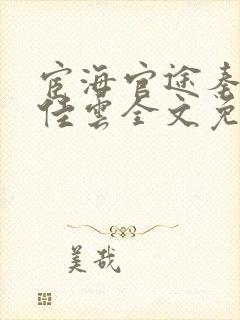 宦海官途秦
佳云全文免
美哉